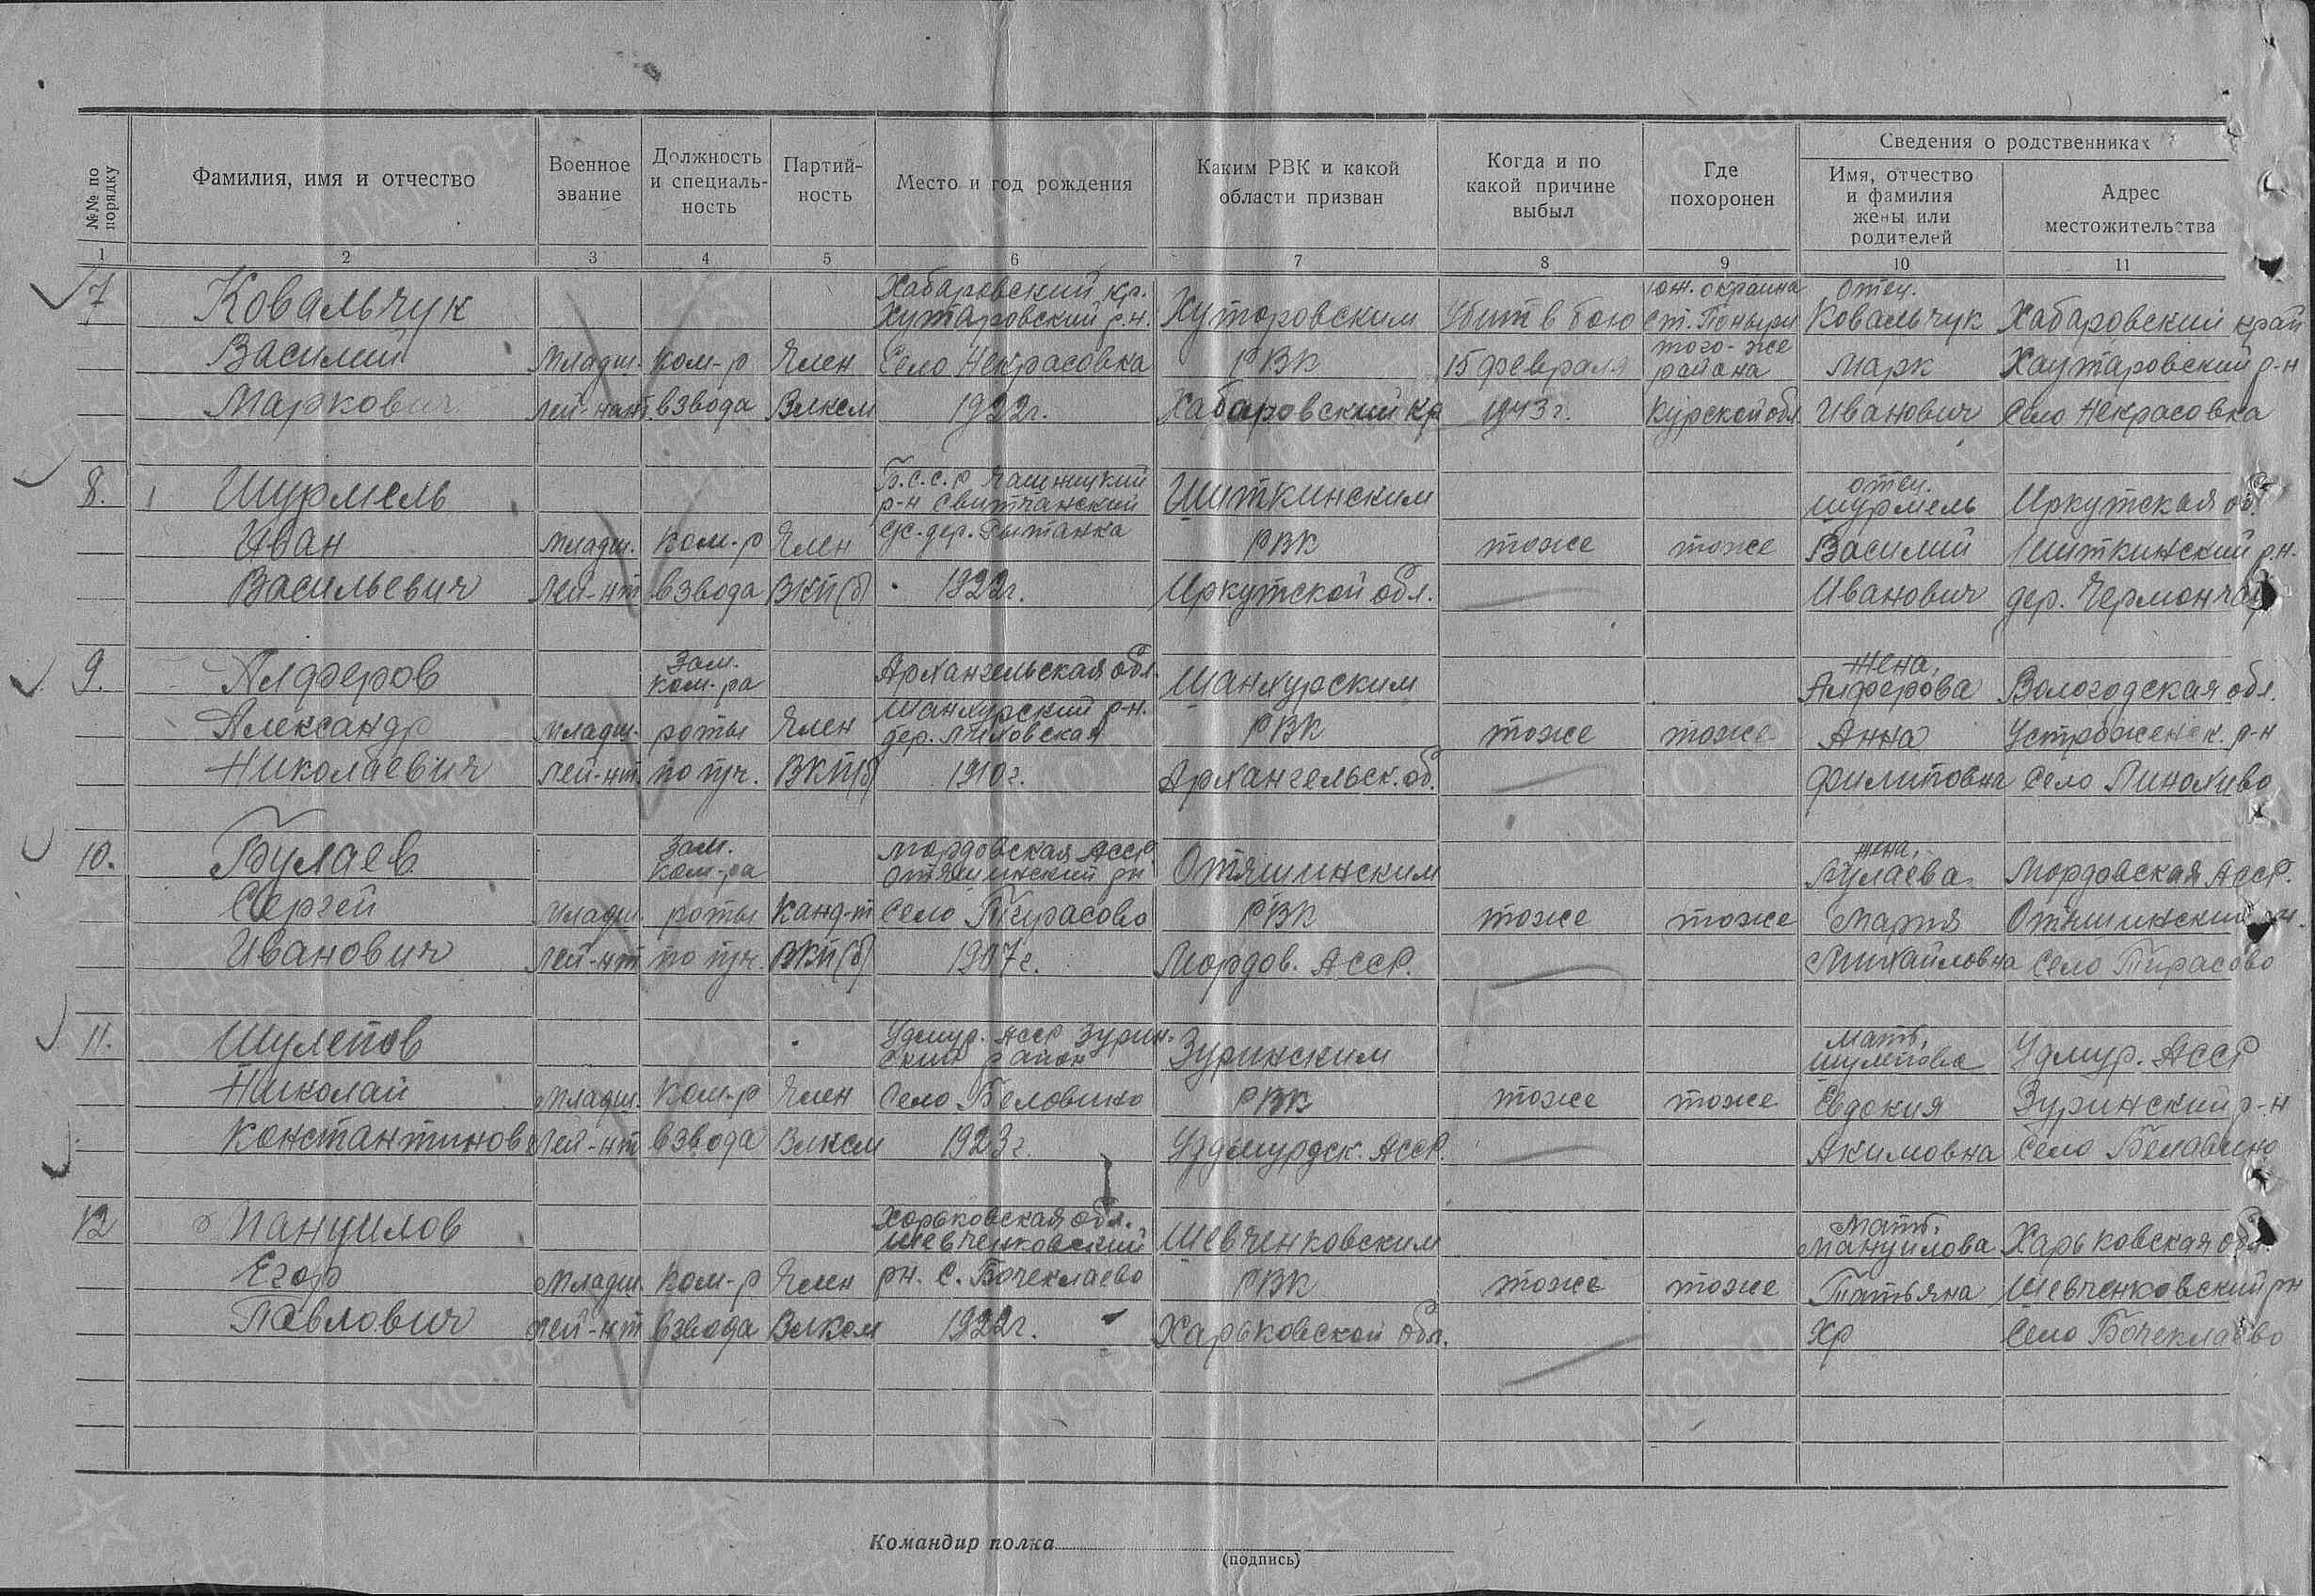 №№ по порядку
Фамилия, имя и отчество
Военное звание
Должность и специаль-ность
Партий-ность
Место и год рождения
Каким РВК и какой области призван
Когда и по какой причине выбыл
Где похоронен
Сведения о родственниках
Имя, отчество и фамилия жены или родителей
Адрес местожительства
1 2 3 4 5 6 7 8 9 10 11
Хабаровский кр. юж. окраина отец.
7 Ковальчук Хутаровский р.н. Хуторовским Убит в бою ст. Поныри Ковальчук Хабаровский край
Василий младш. ком-р Член Село Некрасовка РВК 15 февраля того-же района Марк Хаутаровский р-н
Маркович лей-нант. взвода Влксм 1922г. Хабаровский кр 1943г. Курской обл. Иванович Село Некрасовка
Б.с.с.р Чашницкий отец.
8. Шурмель р-н Свитчанский Шиткинским Шурмель Иркутская об.
Иван младш. ком-р Член с/с. дер. РВК тоже тоже Василий Шиткинский р.н.
Васильевич лей-нт взвода ВКП(б) 1922г. Иркутской обл. Иванович дер.
зам. жена,
9. Алферов ком-ра Архангельская обл. Шанхурским Алферова Вологодская обл.
Александр младш. роты Член Шанхурский р-н. дер. РВК тоже тоже Анна р-н
Николаевич лей-нт. по пч. ВКП(б) 1910г. Архангельск. об. Филиповна Село
зам. Мордовская АССР. жена,
10. Булаев ком-ра Отяшинский рн Отяшинским Булаева Мордовская АССР.
Сергей младш. роты Канд-т Село РВК тоже тоже Мария Отяшинский
Иванович лей-нт по пч. ВКП(б) 1907г. Мордов. АССР. Михайловна Село
Удмур. АССР Зурин- мать,
11. Шулепов ский район Зуринским Шулепова Удмур. АССР
Николай младш. ком-р Член Село РВК тоже тоже Евдокия Зуринский р-н
Константинов лей-нт взвода Влксм 1923г. Уддмурдск. АССР. Акимовна Село
Хорьковская обл. Мать.
12 Мануилов Шевченковский Шевченковским Мануилова Харьковская обл.
Егор младш. ком-р Член рн. С. Бочеклаево РВК тоже тоже Татьяна Шевченковский рн
Павлович лей-нт взвода Влксм 1922г. Харьковской обл. Хр Село Бочеклаево
Командир полка
(подпись)